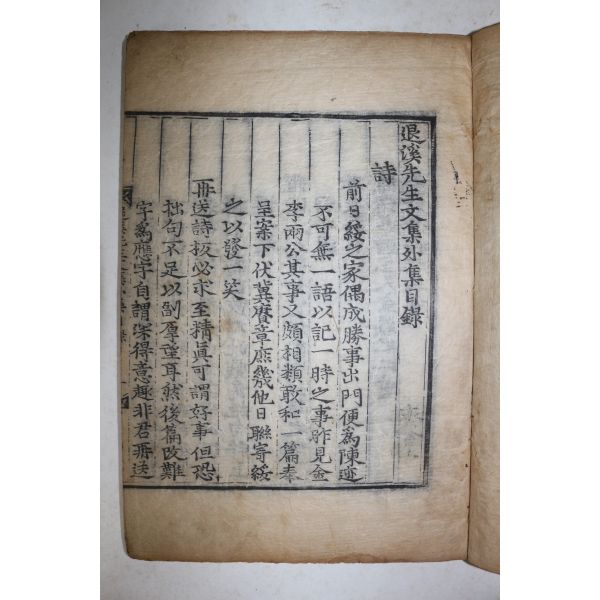 退溪先生文集外集目錄
詩
前日綏之家偶成勝事出門便爲陳迹
不可無一語以記一時之事昨見金
李兩公其事又頗相類敢和一篇奉
呈案下伏冀賡章庶幾他日聯寄綏
之以發一笑
再送詩板必求至精眞可謂好事但恐
拙句不足以副厚望耳然後篇改難
字爲應字自謂深得意趣非君再送